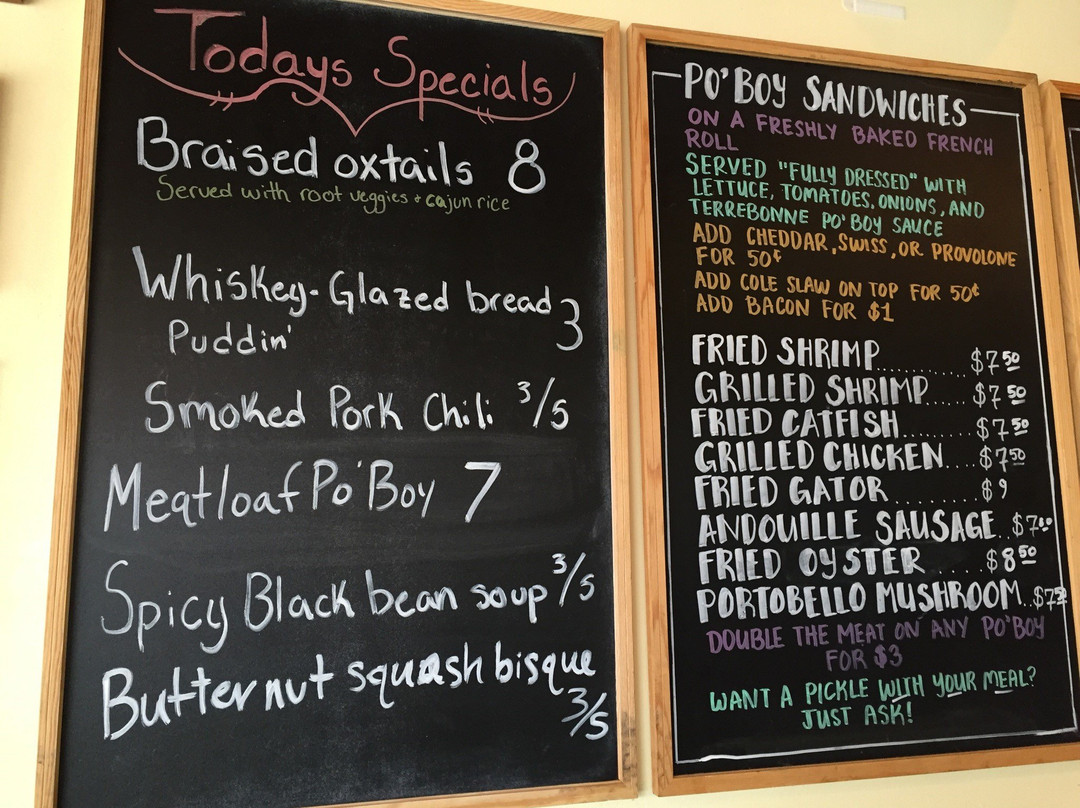 Todays Specials
Braised oxtails 8
Served with root veggies & cajun rice
Whiskey-Glazed bread 3
Puddin'
Smoked Pork Chili 3/5
Meatloaf Po'Boy 7
Spicy Black bean soup 3/5
Butternut squash bisque
3/5
PO'BOY SANDWICHES
ON A FRESHLY BAKED FRENCH
ROLL
SERVED "FULLY DRESSED" WITH
LETTUCE, TOMATOES, ONIONS, AND
TERREBONNE PO'BOY SAUCE
ADD CHEDDAR, SWISS, OR PROVOLONE
FOR 50¢
ADD COLE SLAW ON TOP FOR 50¢
ADD BACON FOR $1
FRIED SHRIMP............$7 50
GRILLED SHRIMP.....$7 50
FRIED CATFISH........$7 50
GRILLED CHICKEN....$7 50
FRIED GATOR.........$9
ANDOUILLE SAUSAGE..$7
FRIED OYSTER.....$8 50
PORTOBELLO MUSHROOM..$7
DOUBLE THE MEAT ON ANY PO'BOY
FOR $3
WANT A PICKLE WITH YOUR MEAL?
JUST ASK!